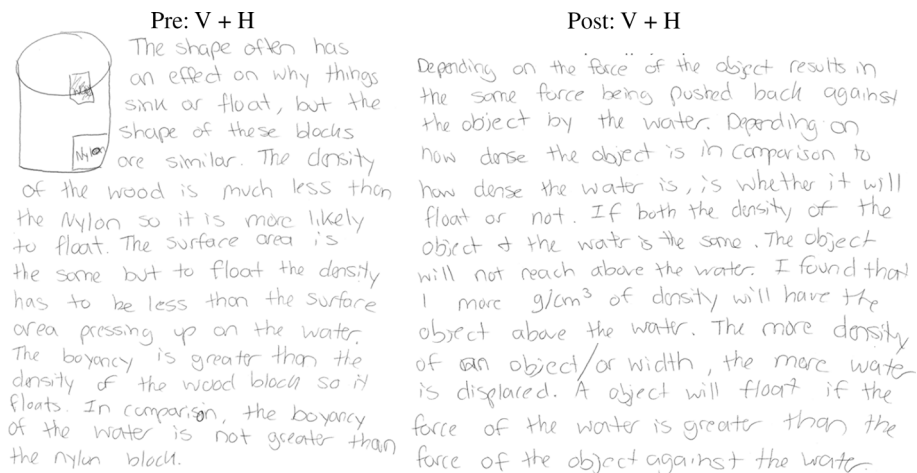 Pre: V + H
The shape often has
an effect on why things
sink or float, but the
shape of these blocks
are similar. The density
of the wood is much less than
the Nylon so it is more likely
to float. The surface area is
the same but to float the density
has to be less than the surface
area pressing up on the water.
The boyancy is greater than the
density of the wood block so it
floats. In comparison, the boyancy
of the water is not greater than
the nylon block.
Nylon
Post: V + H
Depending on the force of the object results in
the same force being pushed back against
the object by the water. Depending on
how dense the object is in comparison to
how dense the water is, is whether it will
float or not. If both the density of the
object & the water is the same. The object
will not reach above the water. I found that
1 more g/cm³ of density will have the
object above the water. The more density
of an object/or width, the more water
is displaced. A object will float if the
force of the water is greater than the
force of the object against the water.